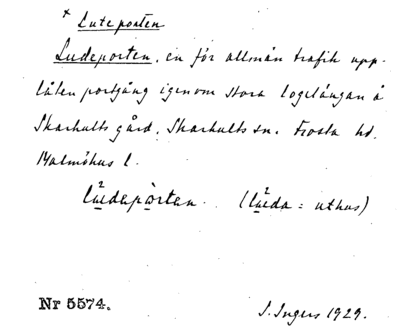 * Luteporten
Ludeporten, en för allmän trafik upp-
låten portgång igenom stora logelängan å
Skarhults gård, Skarhults sn. Frosta hd.
Malmöhus l.
lüdepårtan. (lüda = uthus)
Nr 5574.
I. Ingers 1929.